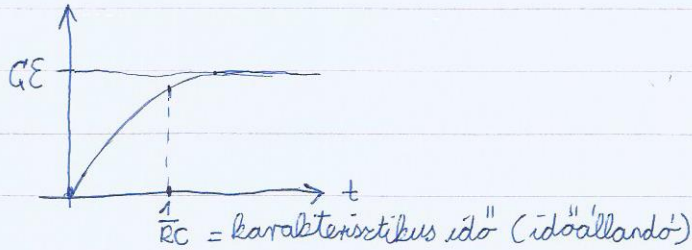 Cε
t
1/RC = karakterisztikus idő (időállandó)